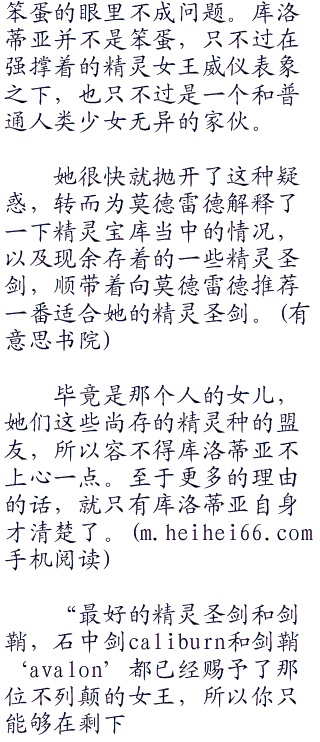 笨蛋的眼里不成问题。库洛
蒂亚并不是笨蛋，只不过在
强撑着的精灵女王威仪表象
之下，也只不过是一个和普
通人类少女无异的家伙。
她很快就抛开了这种疑
惑，转而为莫德雷德解释了
一下精灵宝库当中的情况，
以及现余存着的一些精灵圣
剑，顺带着向莫德雷德推荐
一番适合她的精灵圣剑。(有
意思书院)
毕竟是那个人的女儿，
她们这些尚存的精灵种的盟
友，所以容不得库洛蒂亚不
上心一点。至于更多的理由
的话，就只有库洛蒂亚自身
才清楚了。(m.heihei66.com
手机阅读)
“最好的精灵圣剑和剑
鞘，石中剑caliburn和剑鞘
‘avalon’都已经赐予了那
位不列颠的女王，所以你只
能够在剩下